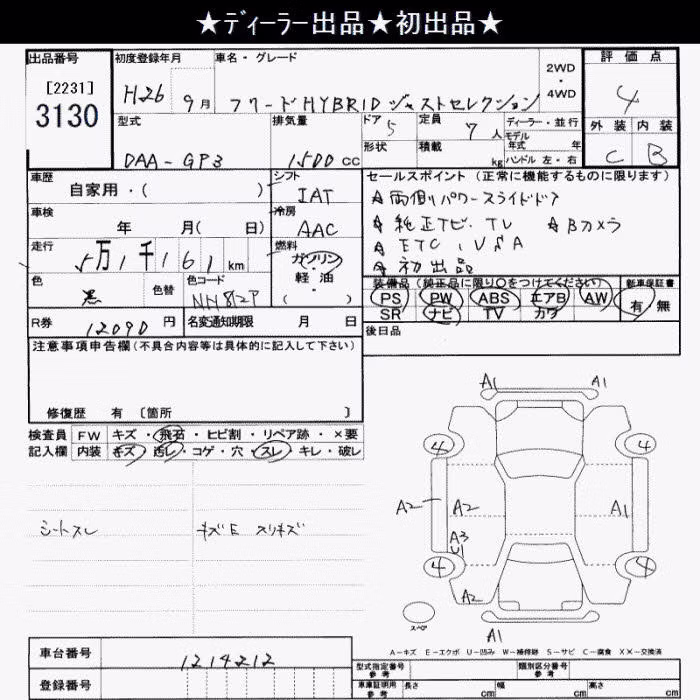 ★ディーラー出品★初出品★
出品番号
[2231]
3130
初度登録年月
H26 9月
車名・グレード
フリードHYBRID ジャストセレクション
2WD
・
4WD
評価点
4
型式
DAA-GP3
排気量
1500 CC
ドア
5
定員
7人
ディーラー・並行
モデル
年式 年
形状
積載
kg
ハンドル 左・右
外装 内装
C B
車歴
自家用・( )
シフト
IAT
セールスポイント (正常に機能するものに限ります)
両側パワースライドドア
純正ナビ. TV Bカメラ
ETC, VSA
初出品
車検
年 月( 日)
冷房
AAC
走行
5万1千161km
燃料
ガソリン
軽・油
( )
色
黒
色替
色コード
NH812P
装備品 (純正品に限り○をつけてください)
新車保証書
PS PW ABS エアB AW
SR ナビ TV カワ
有・無
R券
12090 円
名変通知期限 月 日
後日品
注意事項申告欄(不具合内容等は具体的に記入して下さい)
修復歴 有 〔箇所 〕
検査員
記入欄
FW キズ・飛石・ヒビ割・リペア跡・×要
内装 キズ・汚レ・コゲ・穴・スレ・キレ・破レ
シートスレ
キズE スリキズ
A1 A1
4 4
A2 A2 A1
A3
U1
4 4
A2
A1
スペア
A-キズ E-エクボ U-凹み W-補修跡 S-サビ C-腐食 XX-交換済
車台番号
1214212
登録番号
型式指定番号
参考
類別区分番号
参考
車庫証明用
参考
長さ cm
幅 cm
高さ cm